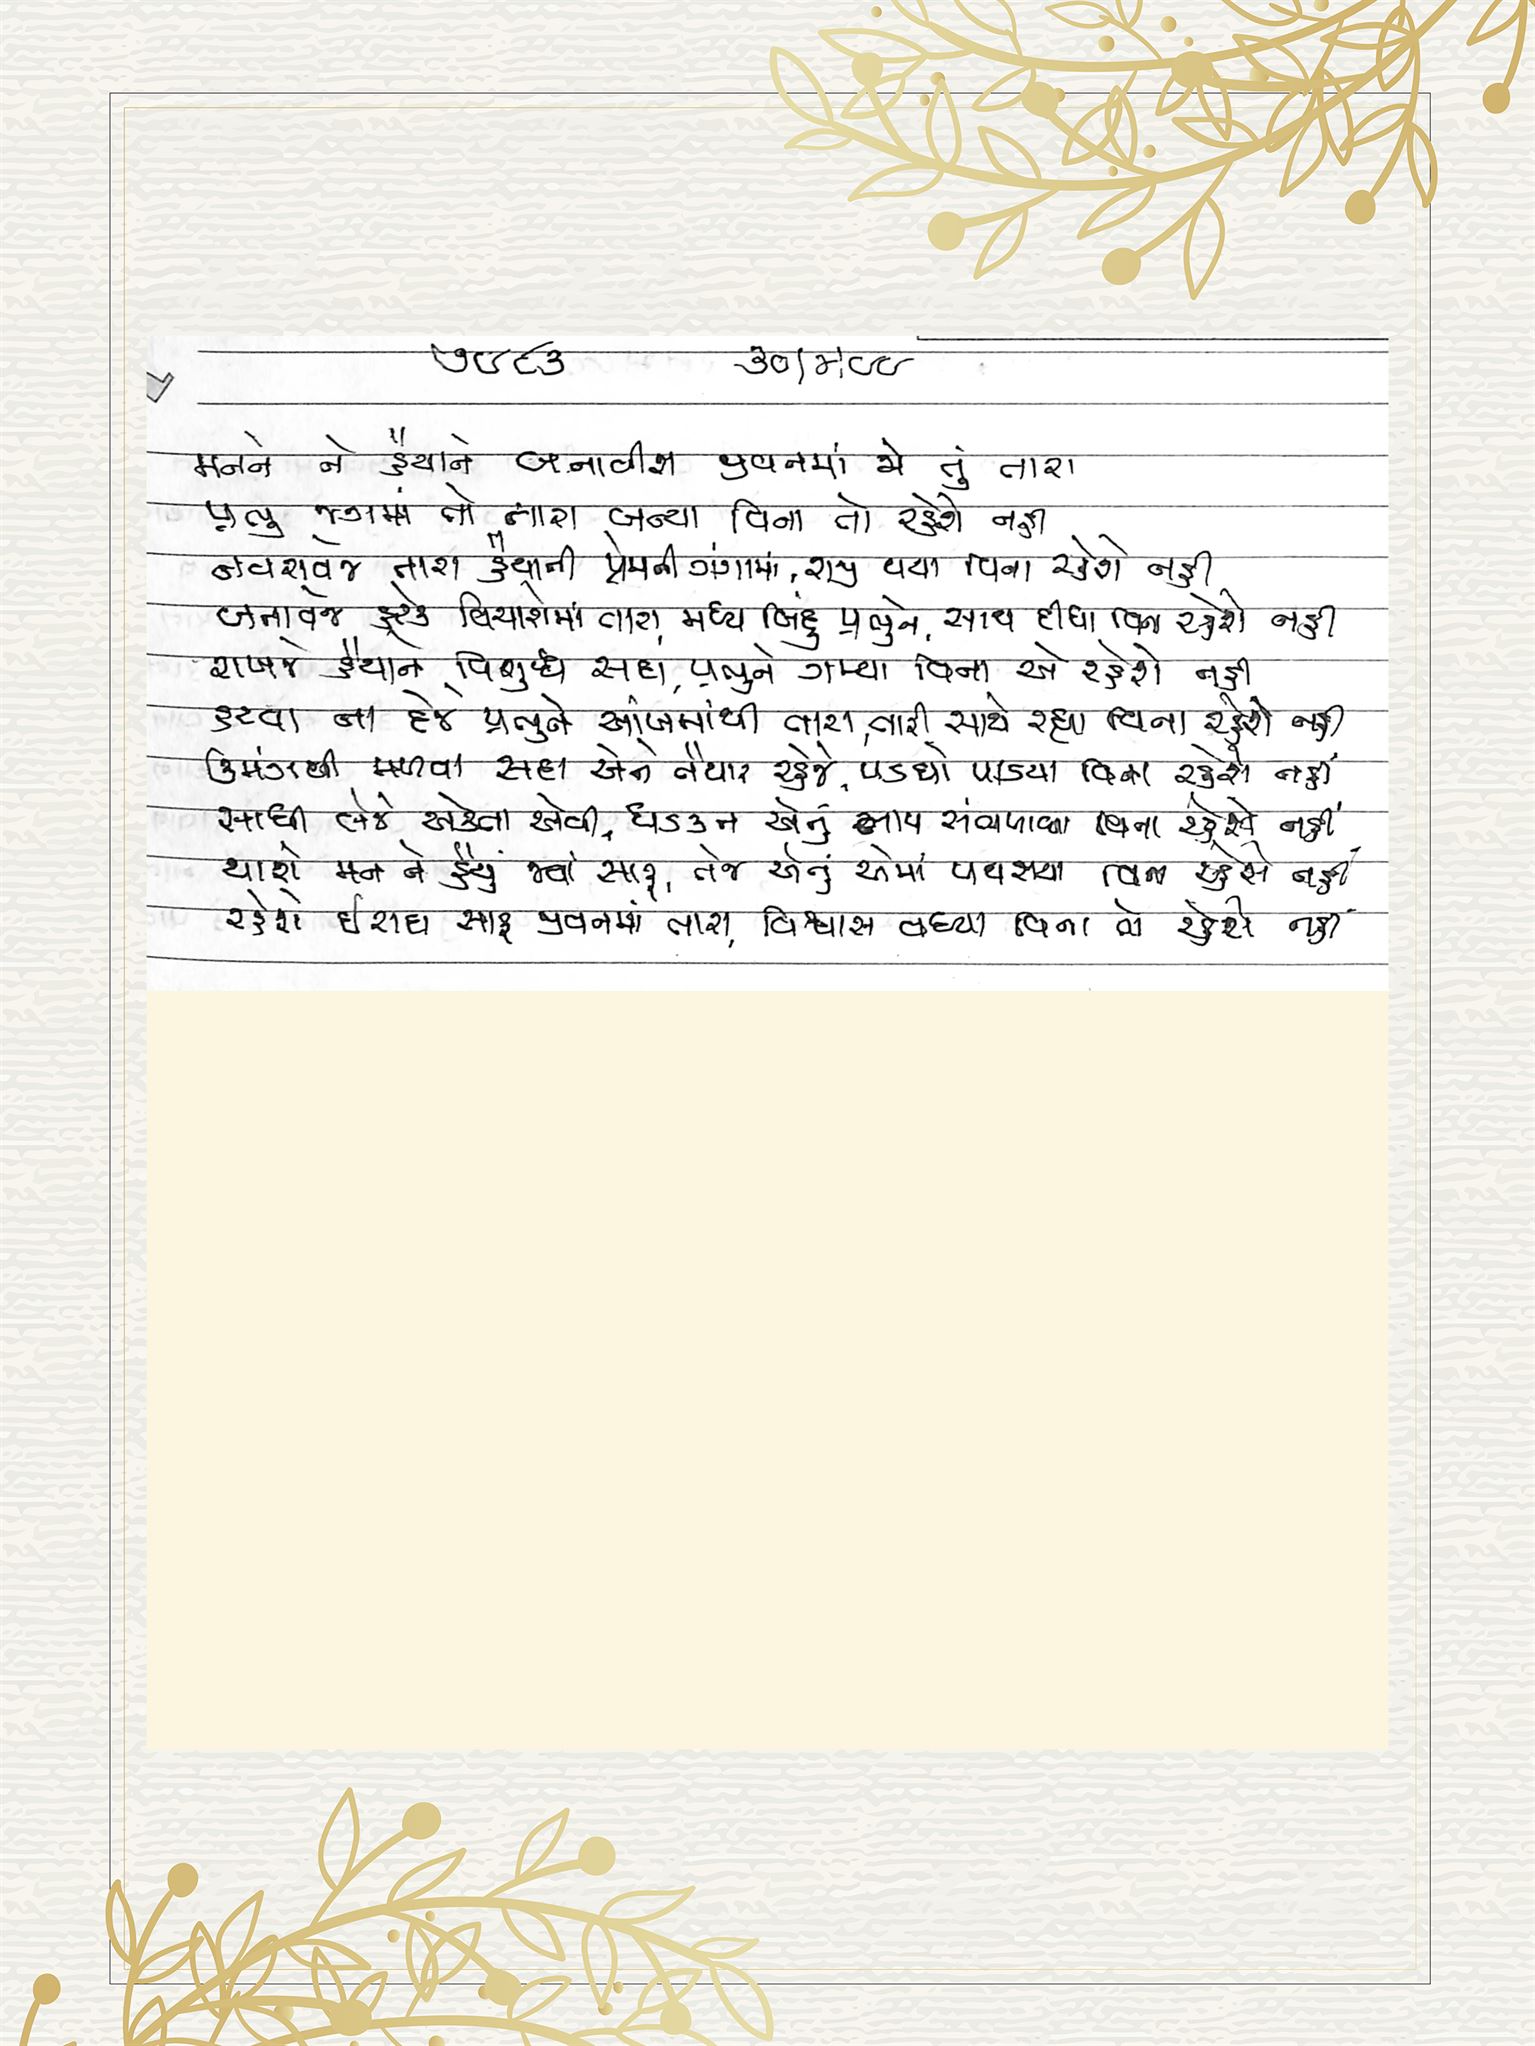 ૭૯૯૩ ૩૦/૪/૯૯
મનને ને હૈયાને બનાવીશ જીવનમાં જો તું તારા
પ્રભુ જગમાં તો તારા બન્યા વિના તો રહેશે નહીં
નવરાવજે તારા હૈયાની પ્રેમની ગંગામાં, રાજી થયા વિના રહેશે નહીં
બનાવજે હરેક વિચારોમાં તારા, મધ્ય બિંદુ પ્રભુને, સાથ દીધા વિના રહેશે નહીં
રાખજે હૈયાને વિશુદ્ધ સદા, પ્રભુને ગમ્યા વિના એ રહેશે નહીં
હટવા ના દેજે પ્રભુને આંખમાંથી તારા, તારી સાથે રહ્યા વિના રહેશે નહીં
ઉમંગથી મળવા સદા એને તૈયાર રહેજે, પડઘો પાડયા વિના રહેશે નહીં
સાધી લેજે એકતા એવી, ધડકન એનું નામ સંભળાવ્યા વિના રહેશે નહીં
થાશે મન ને હૈયું જ્યાં સાફ, તેજ એનું એમાં પથરાયા વિના રહેશે નહીં
રહેશે ઈરાદા સાફ જીવનમાં તારા, વિશ્વાસ વધ્યા વિના તો રહેશે નહીં